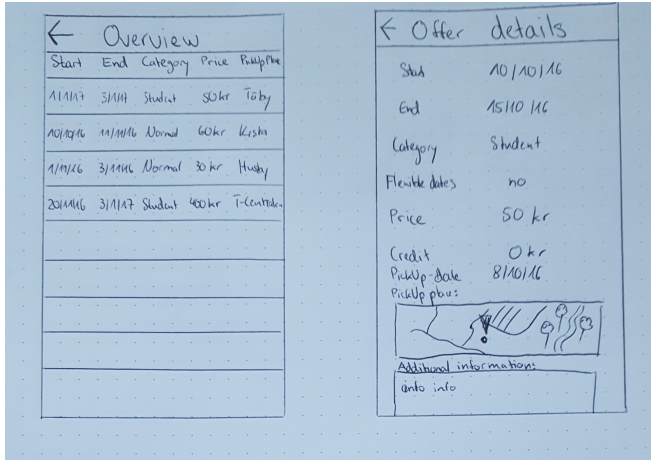 ← Overview
Start End Category Price PickUpPlace
1/1/17 3/1/17 Student 50kr Täby
10/10/16 11/11/16 Normal 60kr Kista
1/11/16 3/11/16 Normal 30 kr Husby
20/11/16 3/1/17 Student 400 kr T-Centralen
← Offer details
Start 10/10/16
End 15/10/16
Category Student
Flexible dates no
Price 50 kr
Credit 0kr
PickUp-date 8/10/16
PickUp place:
Additional information:
info